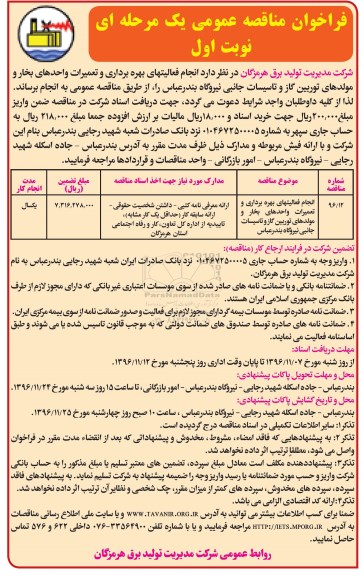 فراخوان مناقصه عمومی یک مرحله ای
نوبت اول
شرکت مدیریت تولید برق هرمزگان در نظر دارد انجام فعالیتهای بهره برداری و تعمیرات واحدهای بخار و
مولدهای توربین گاز و تاسیسات جانبی نیروگاه بندرعباس را، از طریق مناقصه عمومی به انجام برساند.
لذا از کلیه داوطلبان واجد شرایط دعوت می گردد، جهت دریافت اسناد شرکت در مناقصه ضمن واریز
مبلغ ۲۰۰,۰۰۰ ریال جهت خرید اسناد و ۱۸,۰۰۰ ریال مالیات بر ارزش افزوده جمعا مبلغ ۲۱۸,۰۰۰ ریال به
حساب جاری سپهر به شماره ۰۱۰۴۶۷۲۵۰۰۰۰۵ نزد بانک صادرات شعبه شهید رجایی بندرعباس بنام این
شرکت و با ارائه فیش مربوطه و مدارک ذیل ظرف مدت مقرر به آدرس بندرعباس - جاده اسکله شهید
رجایی - نیروگاه بندرعباس - امور بازرگانی - واحد مناقصات و قراردادها مراجعه فرمایید.
شماره مناقصه | موضوع مناقصه | مدارک مورد نیاز جهت اخذ اسناد مناقصه | مبلغ تضمین (ریال) | مدت انجام کار
۹۶/۱۲ | انجام فعالیتهای بهره برداری و تعمیرات واحدهای بخار و مولدهای توربین گاز و تاسیسات جانبی نیروگاه بندرعباس | ارائه معرفی نامه کتبی - داشتن شخصیت حقوقی - ارائه سابقه کار (حداقل یک کار مشابه)، تاییدیه از اداره کل تعاون، کار و رفاه اجتماعی استان هرمزگان | ۷,۳۱۶,۲۷۸,۰۰۰ | یکسال
تضمین شرکت در فرایند ارجاع کار (مناقصه):
۱. واریز وجه به شماره حساب جاری ۰۱۰۴۶۷۲۵۰۰۰۰۵ نزد بانک صادرات ایران شعبه شهید رجایی بندرعباس به نام
شرکت مدیریت تولید برق هرمزگان.
۲. ضمانتنامه بانکی و یا ضمانت نامه های صادر شده از سوی موسسات اعتباری غیر بانکی که دارای مجوز لازم از طرف
بانک مرکزی جمهوری اسلامی ایران هستند.
۳. ضمانت نامه صادره توسط موسسات بیمه گر دارای مجوز لازم برای فعالیت و صدور ضمانت نامه از سوی بیمه مرکزی ایران.
۴. ضمانت نامه های صادره توسط صندوق های ضمانت دولتی که به موجب قانون تاسیس شده یا می شوند و طبق
اساسنامه فعالیت می نمایند.
مهلت دریافت اسناد:
از روز شنبه مورخ ۱۳۹۶/۱۱/۰۷ تا پایان وقت اداری روز پنجشنبه مورخ ۱۳۹۶/۱۱/۱۲
محل و مهلت تحویل پاکات پیشنهادی:
بندرعباس - جاده اسکله شهید رجایی - نیروگاه بندرعباس - امور بازرگانی، تا ساعت ۱۵ روز سه شنبه مورخ ۱۳۹۶/۱۱/۲۴
محل و تاریخ گشایش پاکات پیشنهادی:
بندرعباس - جاده اسکله شهید رجایی - نیروگاه بندرعباس، ساعت ۱۰ صبح روز چهارشنبه مورخ ۱۳۹۶/۱۱/۲۵
تذکر۱: سایر اطلاعات تکمیلی در اسناد مناقصه درج گردیده است.
تذکر۲: به پیشنهادهایی که فاقد امضاء، مشروط، مخدوش و پیشنهاداتی که بعد از انقضاء مدت مقرر در فراخوان
واصل می شود، مطلقا ترتیب اثر داده نخواهد شد.
تذکر۳: پیشنهاددهنده مکلف است معادل مبلغ سپرده، تضمین های معتبر تسلیم و یا مبلغ مذکور را به حساب بانکی
شرکت واریز و حسب مورد ضمانتنامه یا رسید واریز وجه را ضمیمه پیشنهاد به شرکت تسلیم نماید. به پیشنهادهای فاقد
سپرده، سپرده های مخدوش، سپرده های کمتر از میزان مقرر، چک شخصی و نظایر آن ترتیب اثر داده نخواهد شد.
تذکر۴: ارائه کد اقتصادی الزامی می باشد.
ضمنا برای کسب اطلاعات بیشتر می توانید به آدرس WWW.TAVANIR.ORG.IR و یا سایت ملی اطلاع رسانی مناقصات
به آدرس HTTP://IETS.MPORG.IR مراجعه فرمایید و یا با شماره تلفن ۳۳۵۶۴۹۰۰-۰۷۶ داخلی ۶۲۲ و ۵۷۶ تماس
حاصل نمایید.
روابط عمومی شرکت مدیریت تولید برق هرمزگان